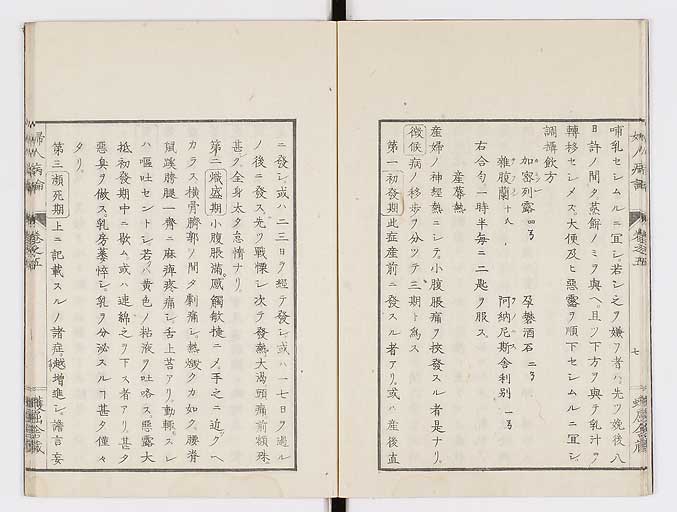 哺乳セシムルニ冝シ。若シ之ヲ嫌フ者ハ。先ツ娩後八
日許ノ間タ蒸餅ノミヲ與ヘ。且ツ下方ヲ與テ乳汁ヲ
轉移セシメズ。大便及ヒ惡露ヲ順下セシムルニ冝シ。
調攝飲方
加密列露 孕礬酒石
雜腹蘭 阿納尼斯舎利別
右合匀一時半每ニ二匙ヲ服ス。
産蓐熱
産婦ノ神經熱ニシテ。小腹脹痛ヲ挾發スル者是ナリ。
徴候病ノ移步ヲ分ツテ三期ト為ス
第一初發期此症産前ニ發スル者アリ。或ハ産後直
七
ニ發シ。或ハ二三日ヲ經テ發シ。或ハ一七日ヲ過ル
ノ後ニ發ス。先ツ戰慄シ次テ發熱大渴頭痛前額殊
甚ク。全身太タ怠惰ナリ。
第二熾盛期小腹脹滿。感觸敏捷ニメ。手之ニ近グヘ
カラス。橫骨臍郭ノ間タ劇痛シ。熱燬クカ如ク。腰脊
鼠蹊膀腿一齊ニ麻痺疼痛シ。舌上苔アリ。動輒スレ
ハ嘔吐セントシ。若クハ黄色ノ粘液ヲ吐咯ス。惡露大
抵初發期中ニ歇ム。或ハ連綿之ヲ下ス者アリ。甚タ
惡臭ヲ做ス。乳房萎悴シ。乳ヲ分泌スルヿ甚タ僅々
タリ。
第三瀕死期上ニ記載スルノ諸症。越増進シ。譫言妄
婦人病論
卷之五